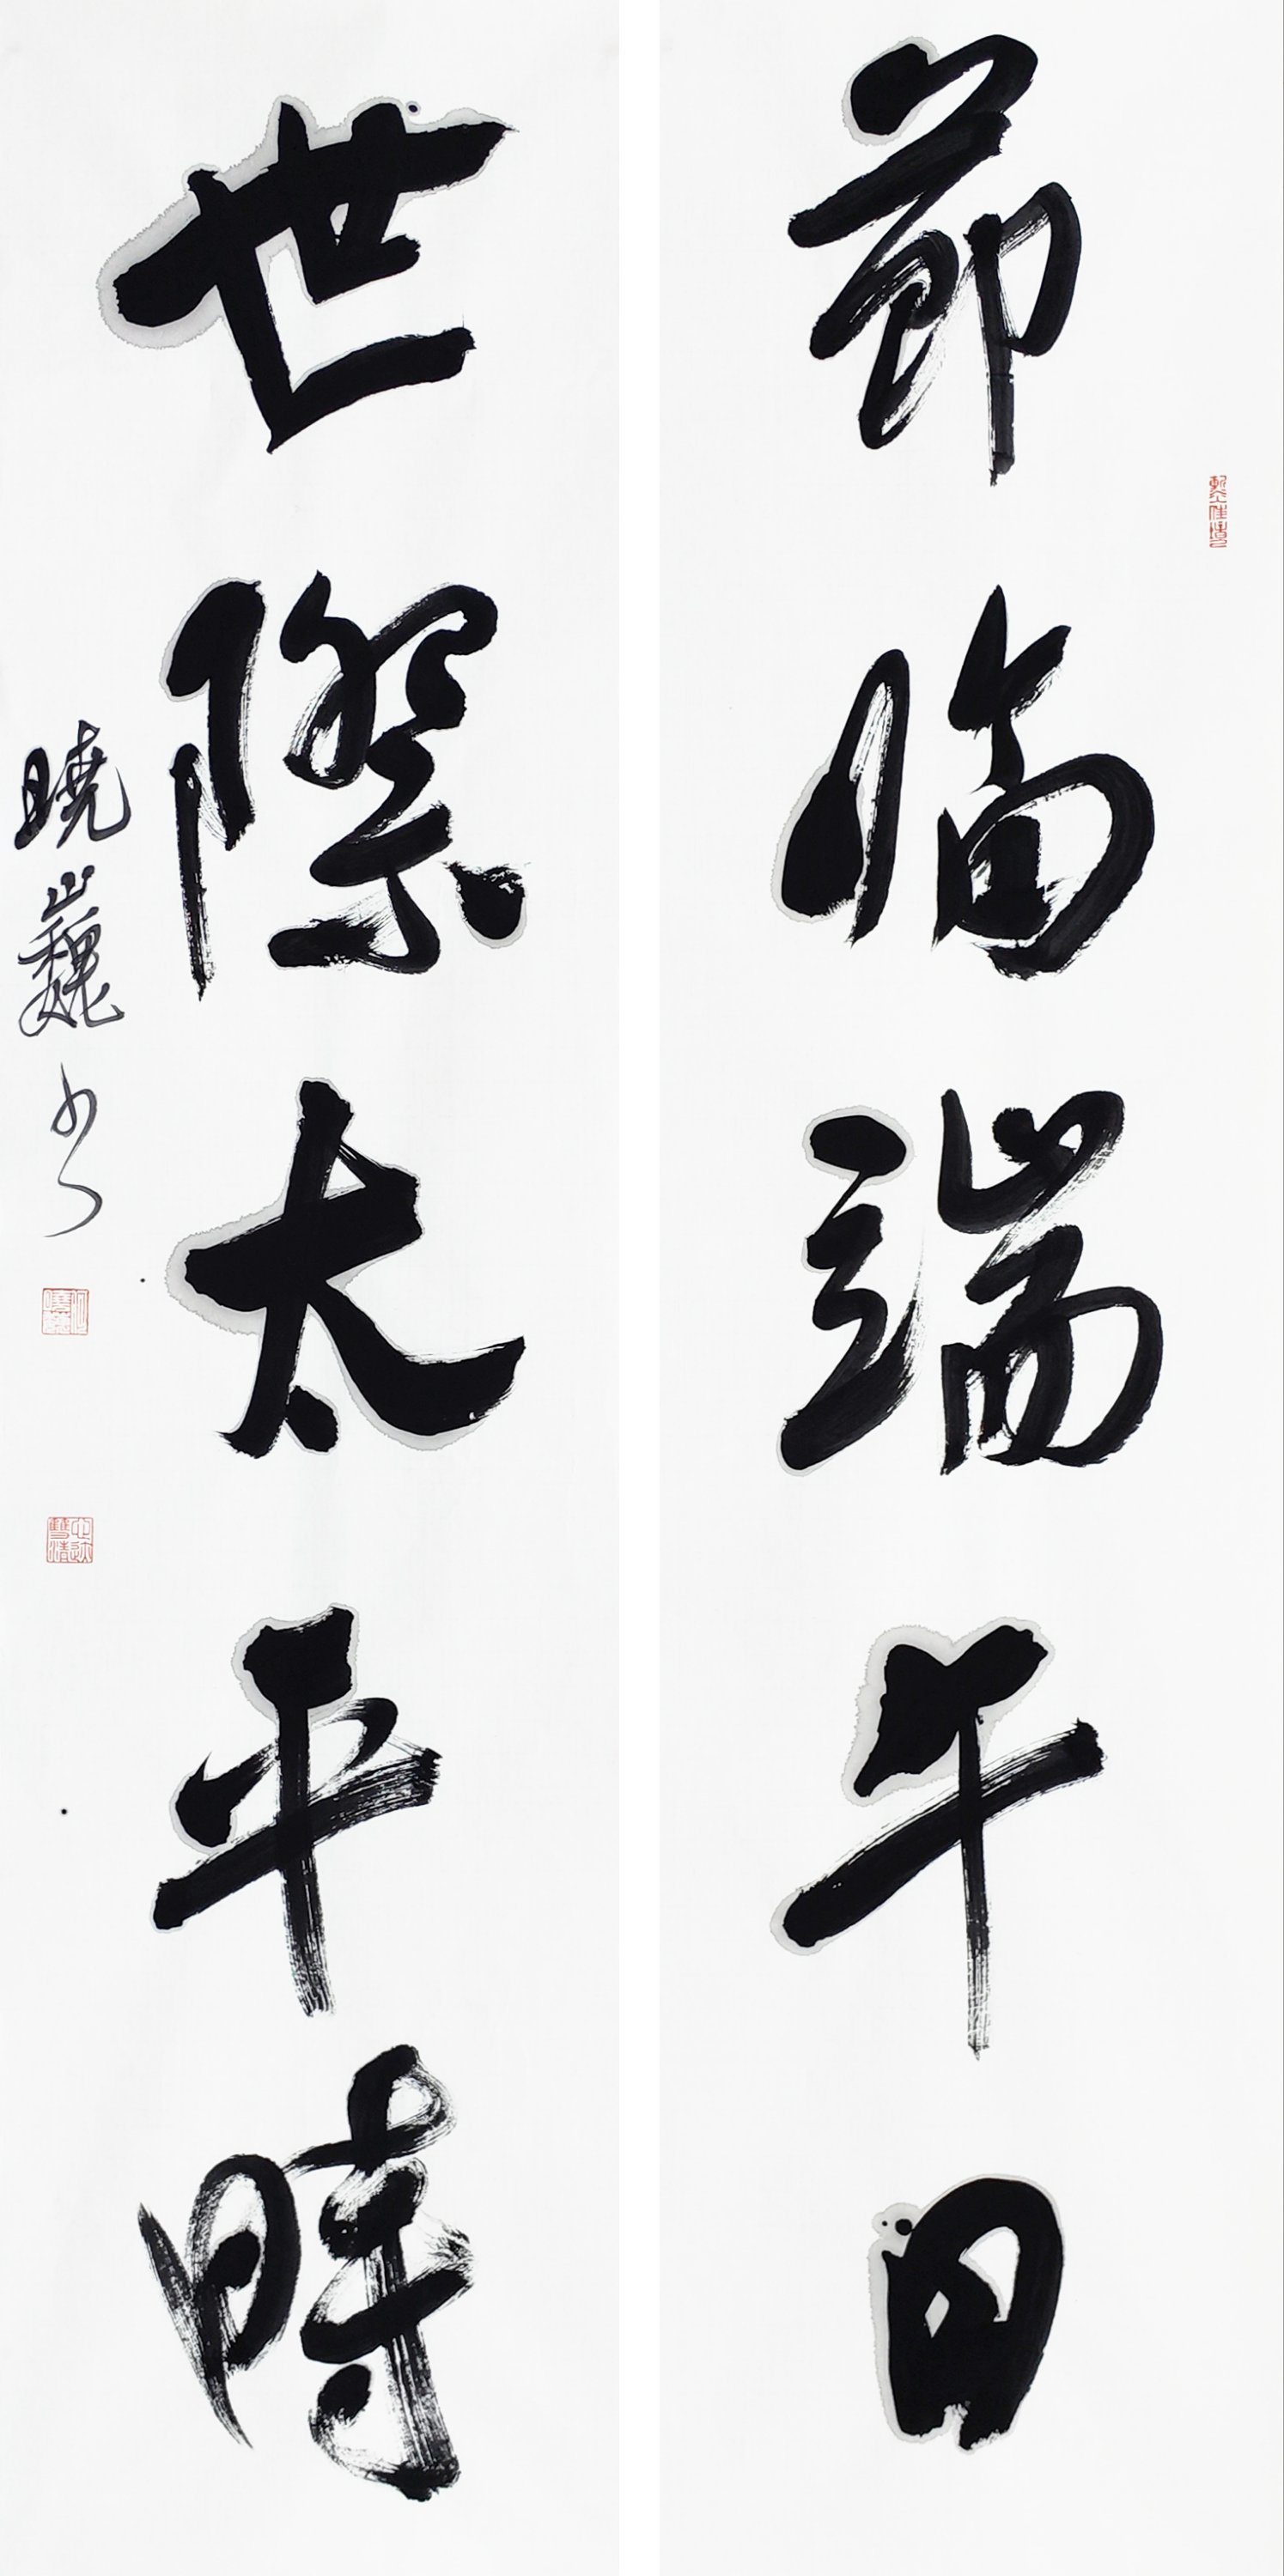 節臨端午日
世際太平時
曉巍书